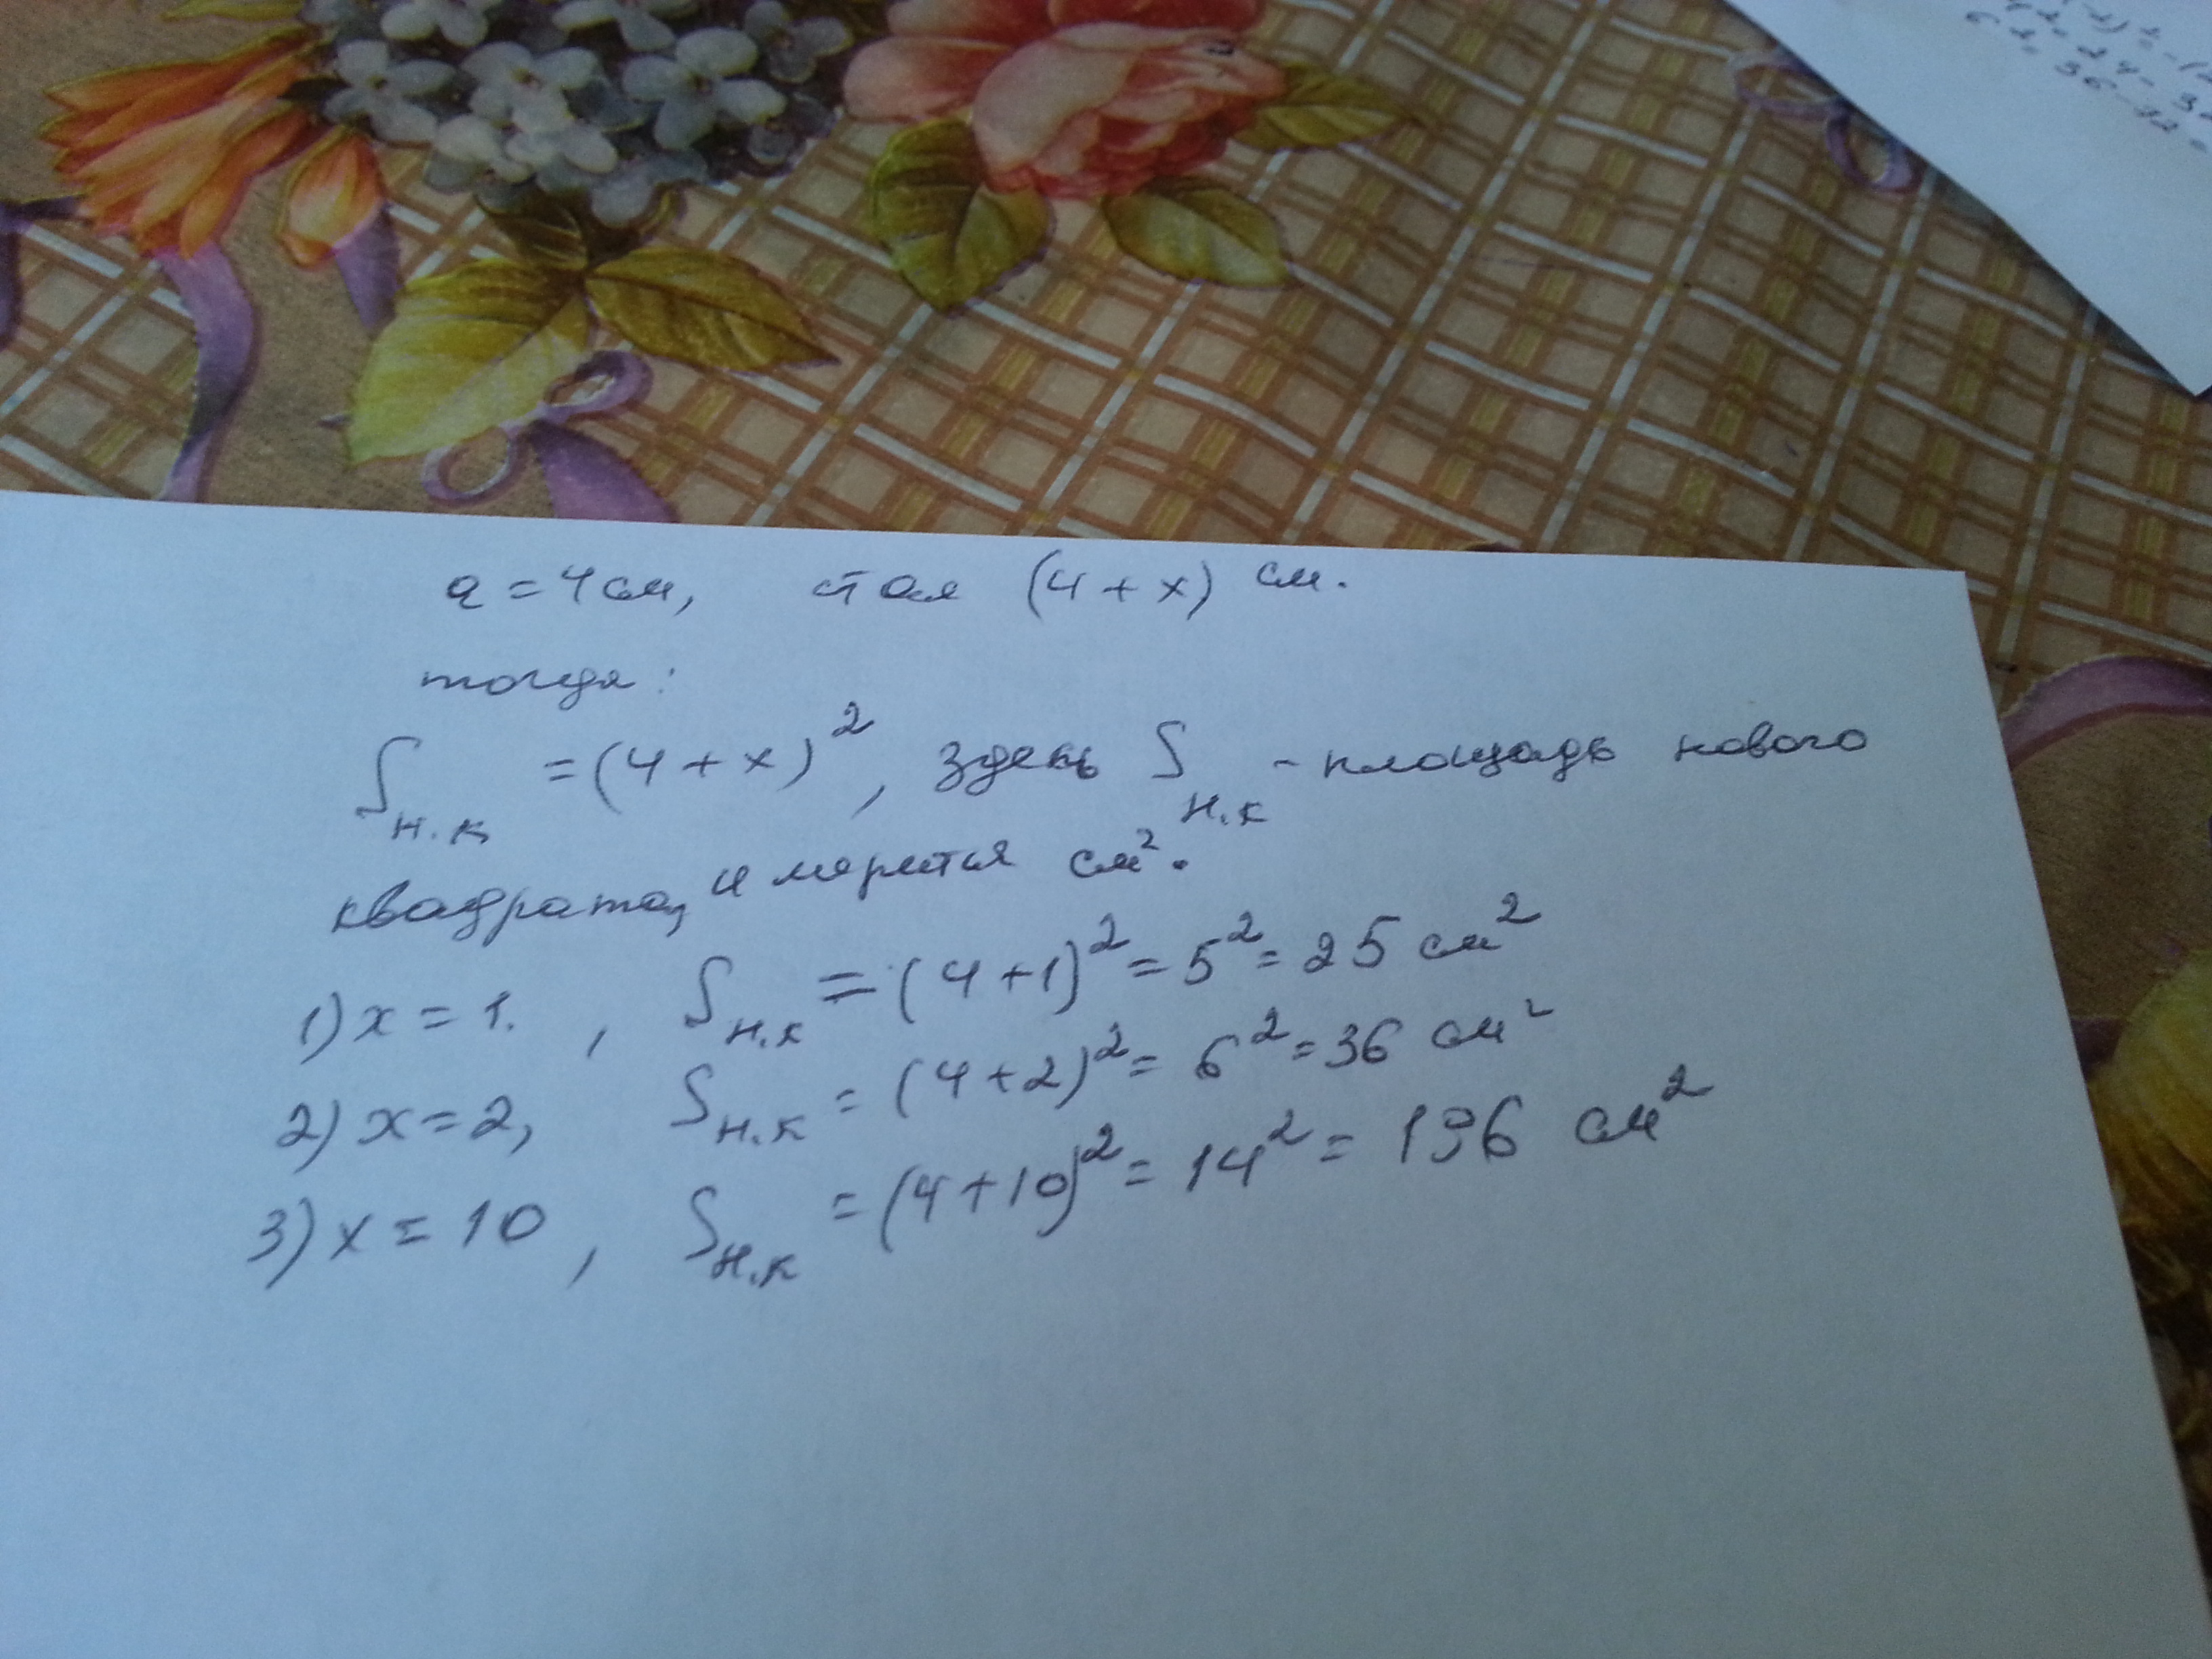 a = 4см, стал (4 + x) см.
тогда:
S н.к = (4 + x)², здесь S н.к - площадь нового
квадрата, и мерится см².
1) x = 1. , S н.к = (4 + 1)² = 5² = 25 см²
2) x = 2, S н.к = (4 + 2)² = 6² = 36 см²
3) x = 10, S н.к = (4 + 10)² = 14² = 196 см²